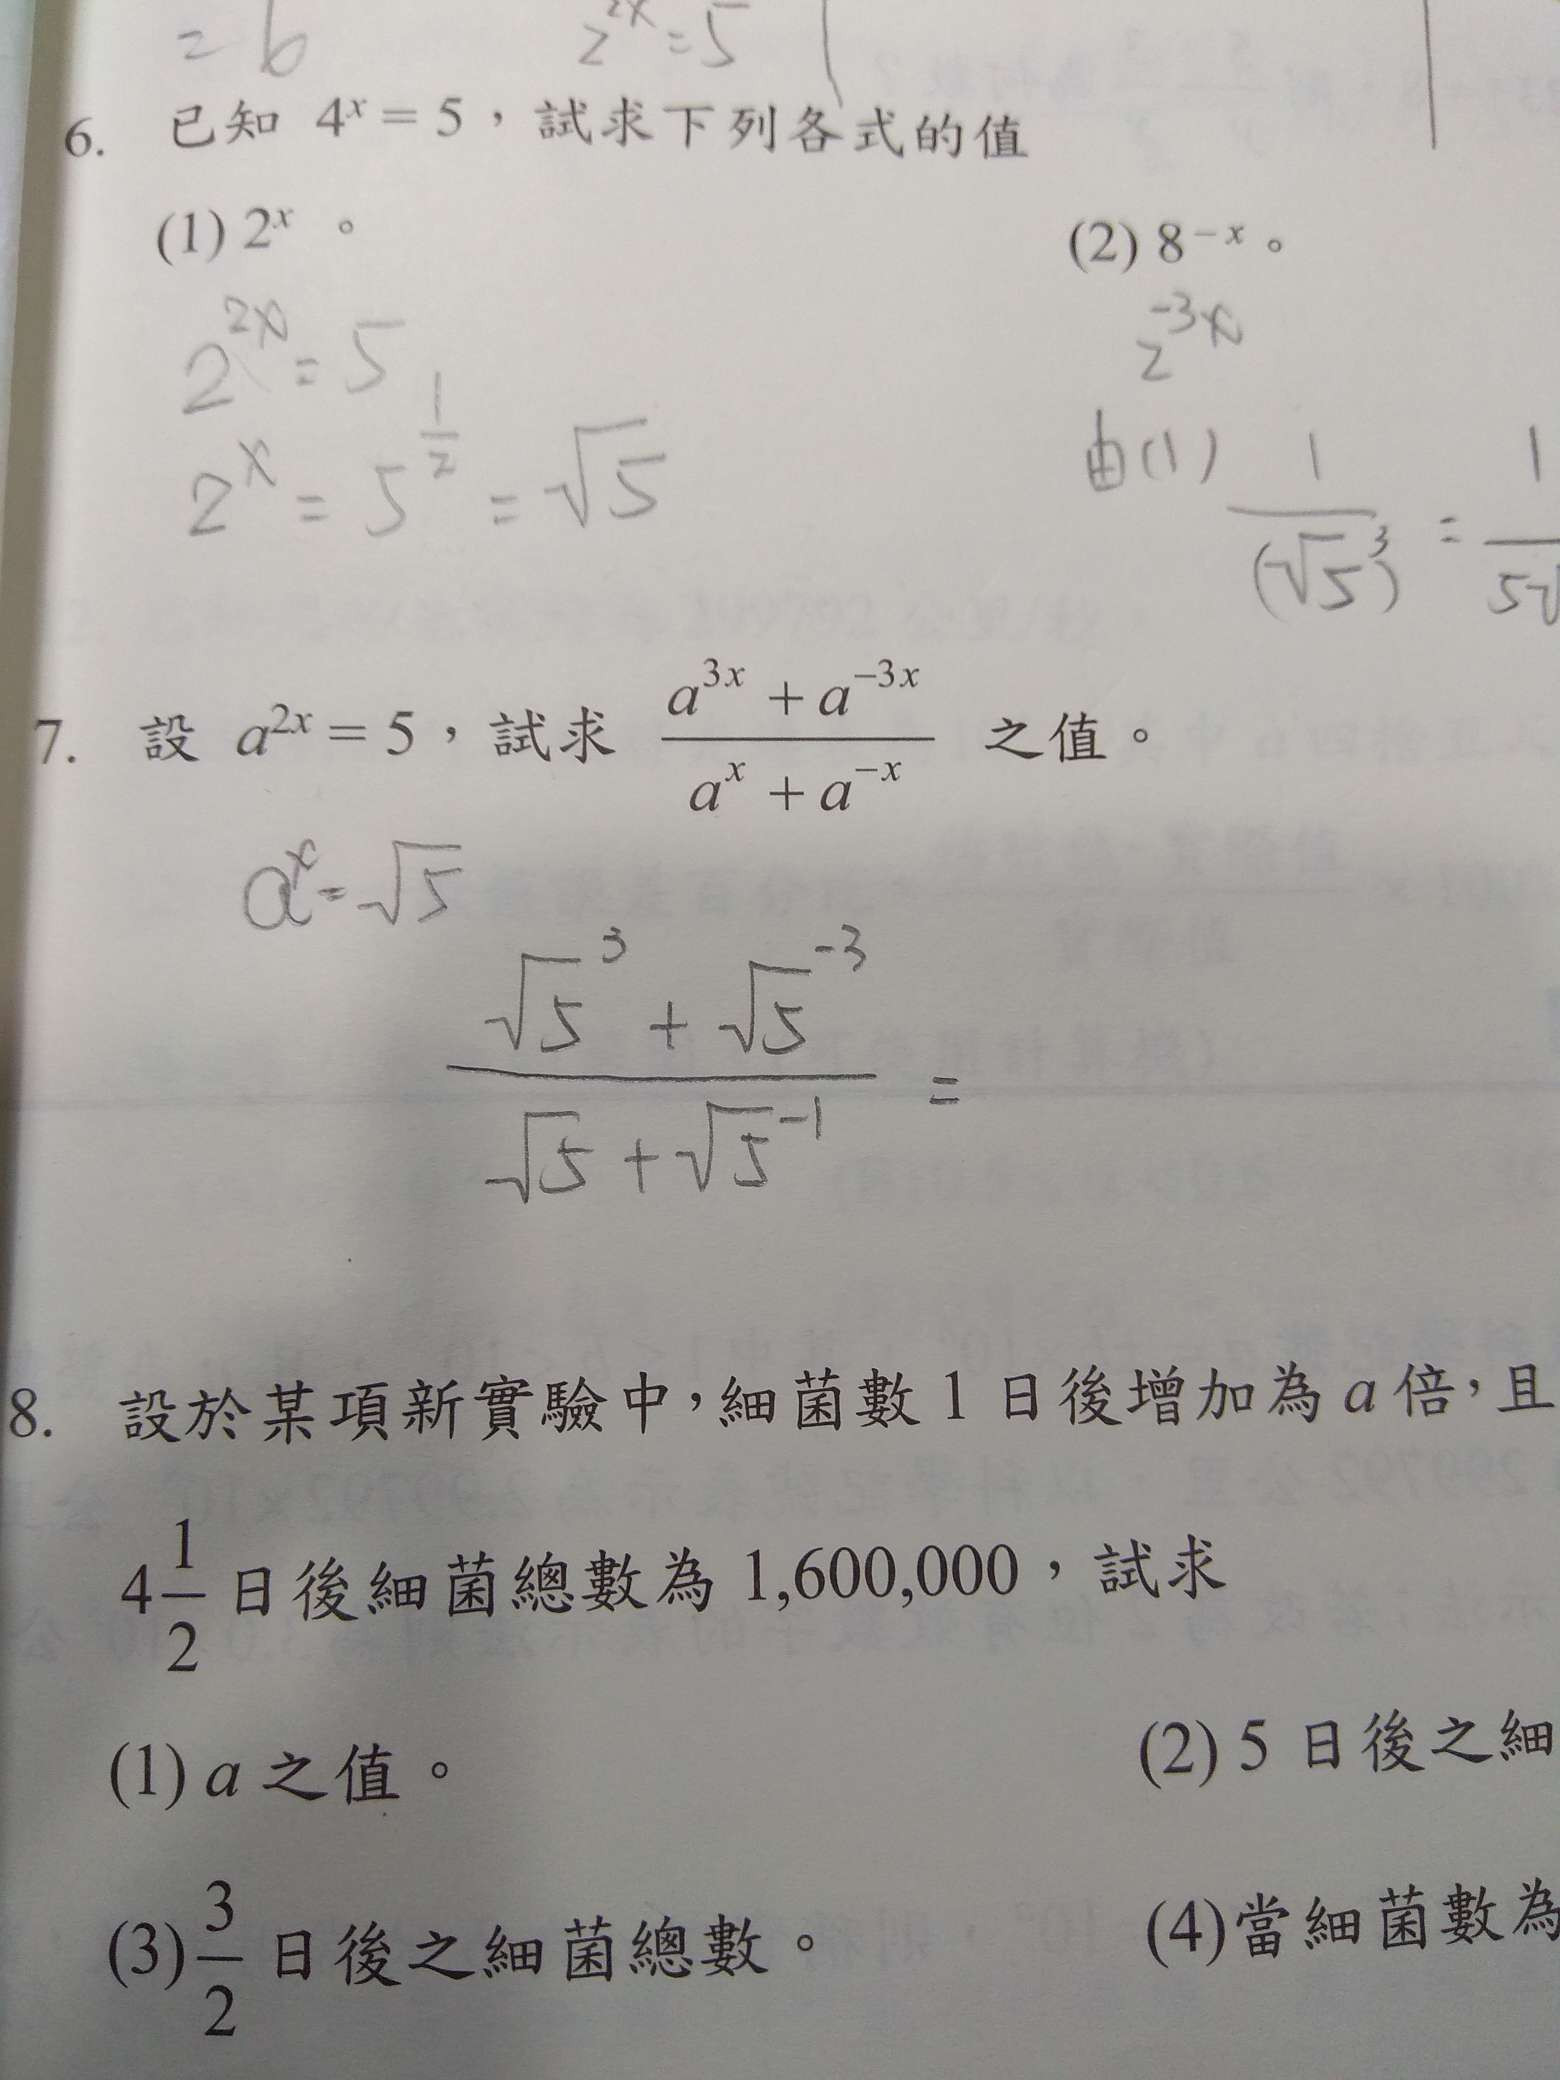 = b 2^{2x} = 5
6. 已知 4^x = 5，試求下列各式的值
(1) 2^x 。 (2) 8^{-x} 。
2^{2x} = 5 2^{-3x}
2^x = 5^{\frac{1}{2}} = √5 由(1) \frac{1}{(√5)^3} = \frac{1}{5√
7. 設 a^{2x} = 5，試求 \frac{a^{3x} + a^{-3x}}{a^x + a^{-x}} 之值。
a^x = √5
\frac{√5^3 + √5^{-3}}{√5 + √5^{-1}} =
8. 設於某項新實驗中，細菌數 1 日後增加為 a 倍，且
4\frac{1}{2} 日後細菌總數為 1,600,000，試求
(1) a 之值。 (2) 5 日後之細
(3) \frac{3}{2} 日後之細菌總數。 (4) 當細菌數為